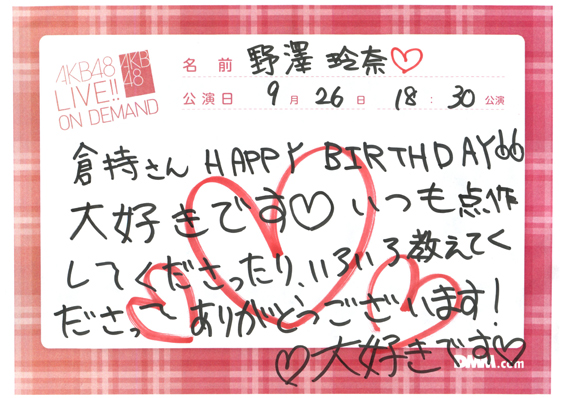 AKB48
LIVE!!
ON DEMAND
AKB
48
名前 野澤 玲奈♡
公演日 9月26日 18:30公演
倉持さん HAPPY BIRTHDAY!!
大好きです♡ いつも点作
してくださったり、いろいろ教えてく
ださって ありがとうございます!
♡大好きです♡
DMM.com